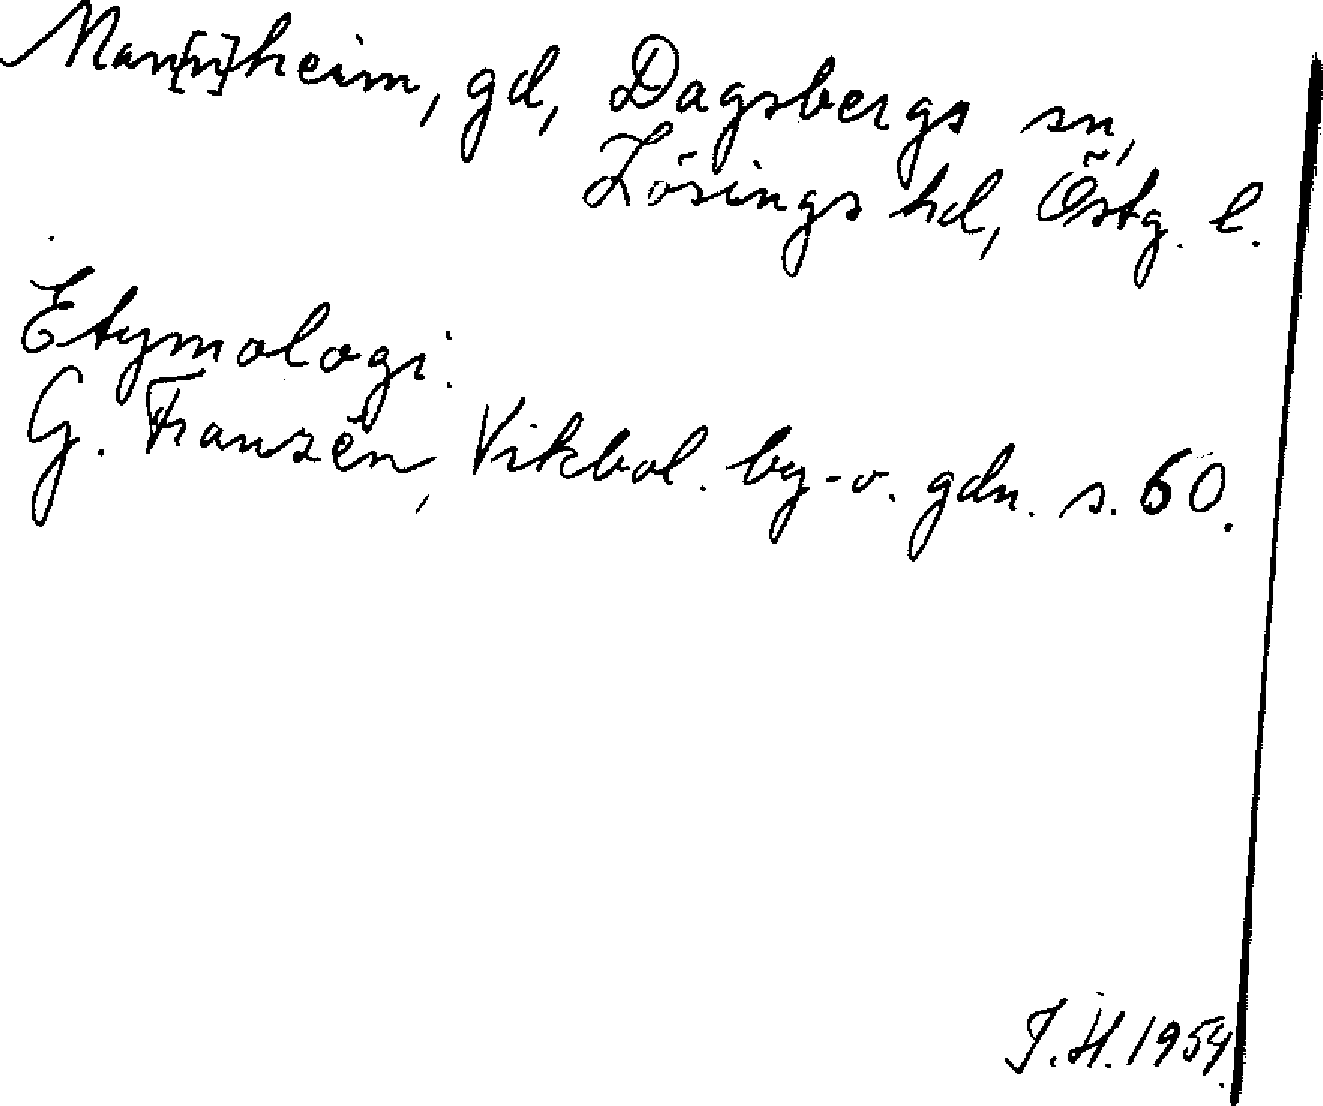 Man[n]heim, gd, Dagsbergs sn,
Lösings hd, Östg. l.
Etymologi:
G. Franzén, Vikbol. by- o. gdn. s. 60.
J.H. 1954.